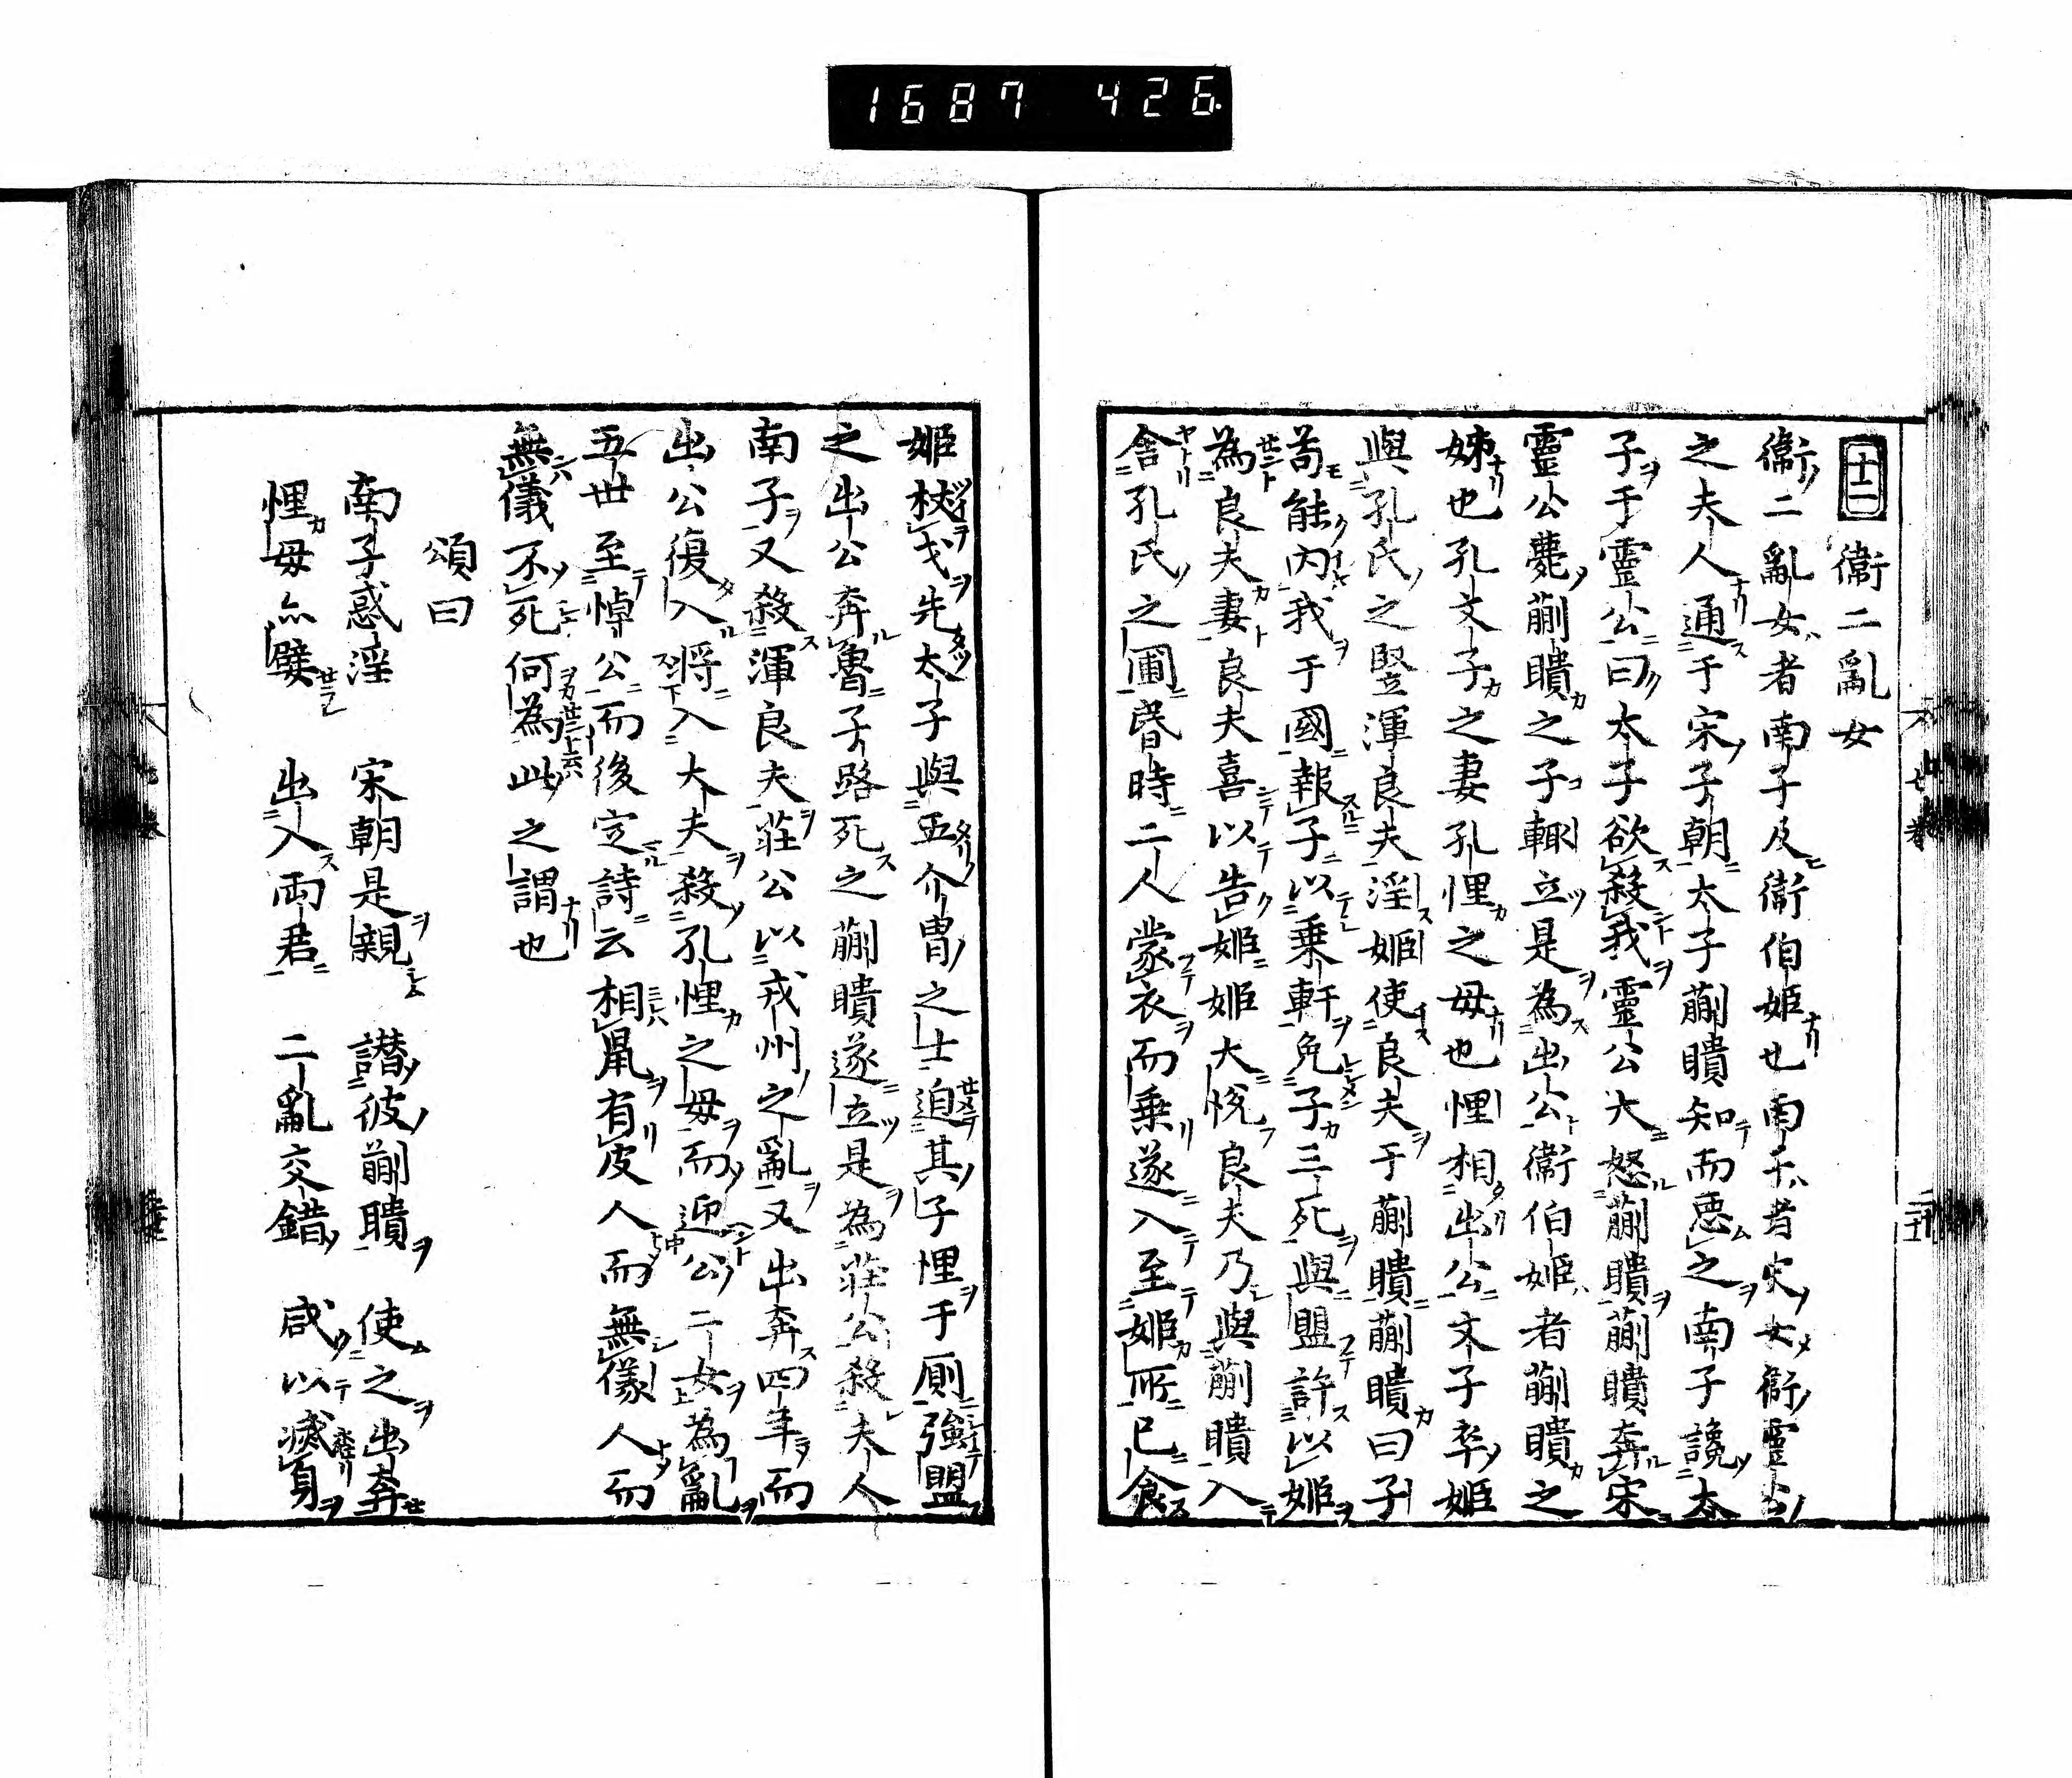 1687 426.
十二 衞二亂女
衞二亂女者南子及衞伯姬也南子者宋女衞靈公
之夫人通于宋子朝太子蒯聵知而惡之南子讒太
子于靈公曰太子欲殺我靈公大怒蒯聵蒯聵奔宋
靈公薨蒯聵之子輒立是為出公衞伯姬者蒯聵之
姊也孔文子之妻孔悝之母也悝相出公文子卒姬
與孔氏之豎渾良夫淫姬使良夫于蒯聵蒯聵曰子
苟能內我于國報子以乗軒免子三死與盟許以姬
為良夫妻良夫喜以告姬姬大悅良夫乃與蒯聵入
舎孔氏之圃昏時二人蒙衣而乗遂入至姬所已食
姬杖戈先太子與五介胄之士迫其子悝于厠強盟
之出公奔魯子路死之蒯聵遂立是為莊公殺夫人
南子又殺渾良夫莊公以戎州之亂又出奔四年而
出公復入將入大夫殺孔悝之母而迎公二女為亂
五世至悼公而後定詩云相鼠有皮人而無儀人而
無儀不死何為此之謂也
頌曰
南子惑淫 宋朝是親 譖彼蒯聵 使之出奔
悝母亦嬖 出入両君 二亂交錯 咸以滅身